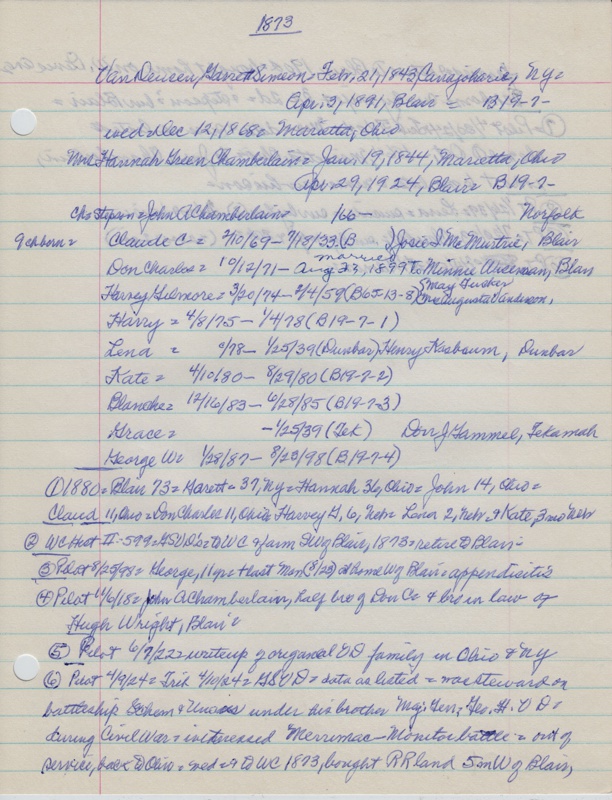 1873
Van Deusen, Garrett Simeon = Feb, 21, 1843, Canajoharie, Ny =
Apr. 3, 1891, Blair = B19-7-
wed = Dec 12, 1868 = Marietta, Ohio
Mrs Hannah Green Chamberlain = Jan. 19, 1844, Marietta, Ohio
Apr. 29, 1924, Blair = B19-7-
John A Chamberlain = 166 - Norfolk
9 chborn = Claude C = 2/10/69 - 7/18/33 (B Josie I McMurtrie, Blair
Don Charles = 10/12/71 - married Aug 23, 1899 to Minnie Wireman, Blair
Harvey Gilmore = 3/20/74 - 2/4/59 (B65-13-8) May Tucker
Augusta Vandixon,
Harry = 4/8/75 - 1/4/78 (B19-7-1)
Lena = 0/78 - 1/25/39 (Dunbar) Henry Kasbaum, Dunbar
Kate = 4/10/80 - 8/29/80 (B19-7-2)
Blanche = 12/16/83 - 6/28/85 (B19-7-3)
Grace = - 1/25/39 (Tek) Don J Gammel, Tekamah
George W = 1/28/87 - 8/23/98 (B19-7-4)
① 1880 = Blair 73 = Garett = 37, Ny = Hannah 36, Ohio = John 14, Ohio =
Claud 11, Ohio = Don Charles 11, Ohio = Harvey G, 6, Neb = Lena 2, Neb, & Kate, 3 mo Neb
② WC Hist II - 599 = GSVD's = to WC & farm SW of Blair, 1873 = retire to Blair =
③ Pilot 8/25/98 = George, 11 yr = last Mon (8/23) at home W of Blair = appendicitis
④ Pilot 6/6/18 = John A Chamberlain, half bro of Don C = & bro in law of
Hugh Wright, Blair =
⑤ Pilot 6/7/22 = writeup of original VD family in Ohio & Ny
⑥ Pilot 4/9/24 = Trib 4/10/24 = GSVD = data as listed = was steward on
battleship under his brother Maj. Gen. Geo. H. VD =
during Civil War = witnessed Merrimac-Monitor battle = out of
service, back to Ohio = wed = & to WC 1873, bought RR land 5m W of Blair,